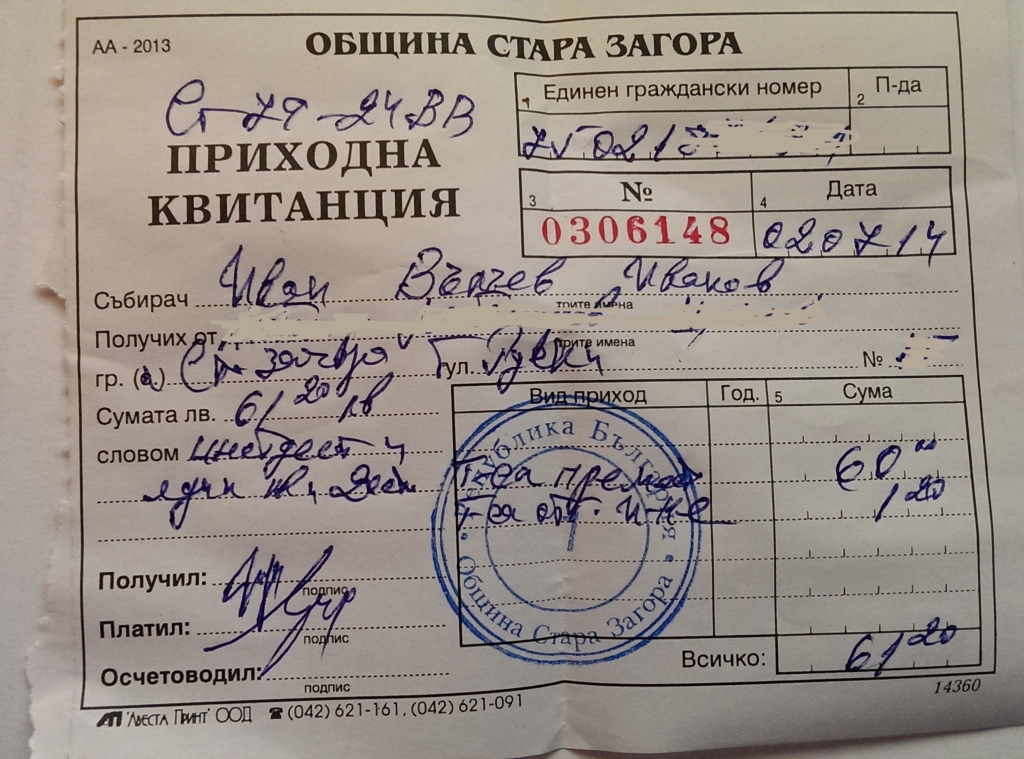 АА - 2013
ОБЩИНА СТАРА ЗАГОРА
Ст-79-24 ВВ
ПРИХОДНА
КВИТАНЦИЯ
1 Единен граждански номер
2 П-да
3 №
0306148
4 Дата
020714
Събирач Иван Вълчев Иванов
трите имена
Получих от
трите имена
гр. (с.) Ст. Загора ул.
№
Сумата лв. 61 20 лв
словом шестдесет и
един лв. и двест
Вид приход
Год.
5 Сума
Т-са
60 00
Т-са
1 20
Република България
Община Стара Загора
Получил:
подпис
Платил:
подпис
Осчетоводил:
подпис
Всичко:
61 20
14360
АП "АВЕСТА ПРИНТ" ООД ☎ (042) 621-161, (042) 621-091